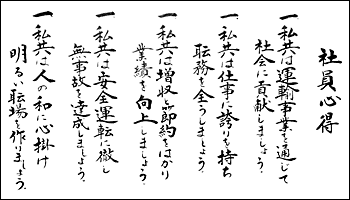 社員心得
一、私共は運輸事業を通じて
社会に貢献しましょう。
一、私共は仕事に誇りを持ち
職務を全うしましょう。
一、私共は増収と節約をはかり
業績を向上しましょう。
一、私共は安全運転に徹し
無事故を達成しましょう。
一、私共は人の和に心掛け
明るい職場を作りましょう。